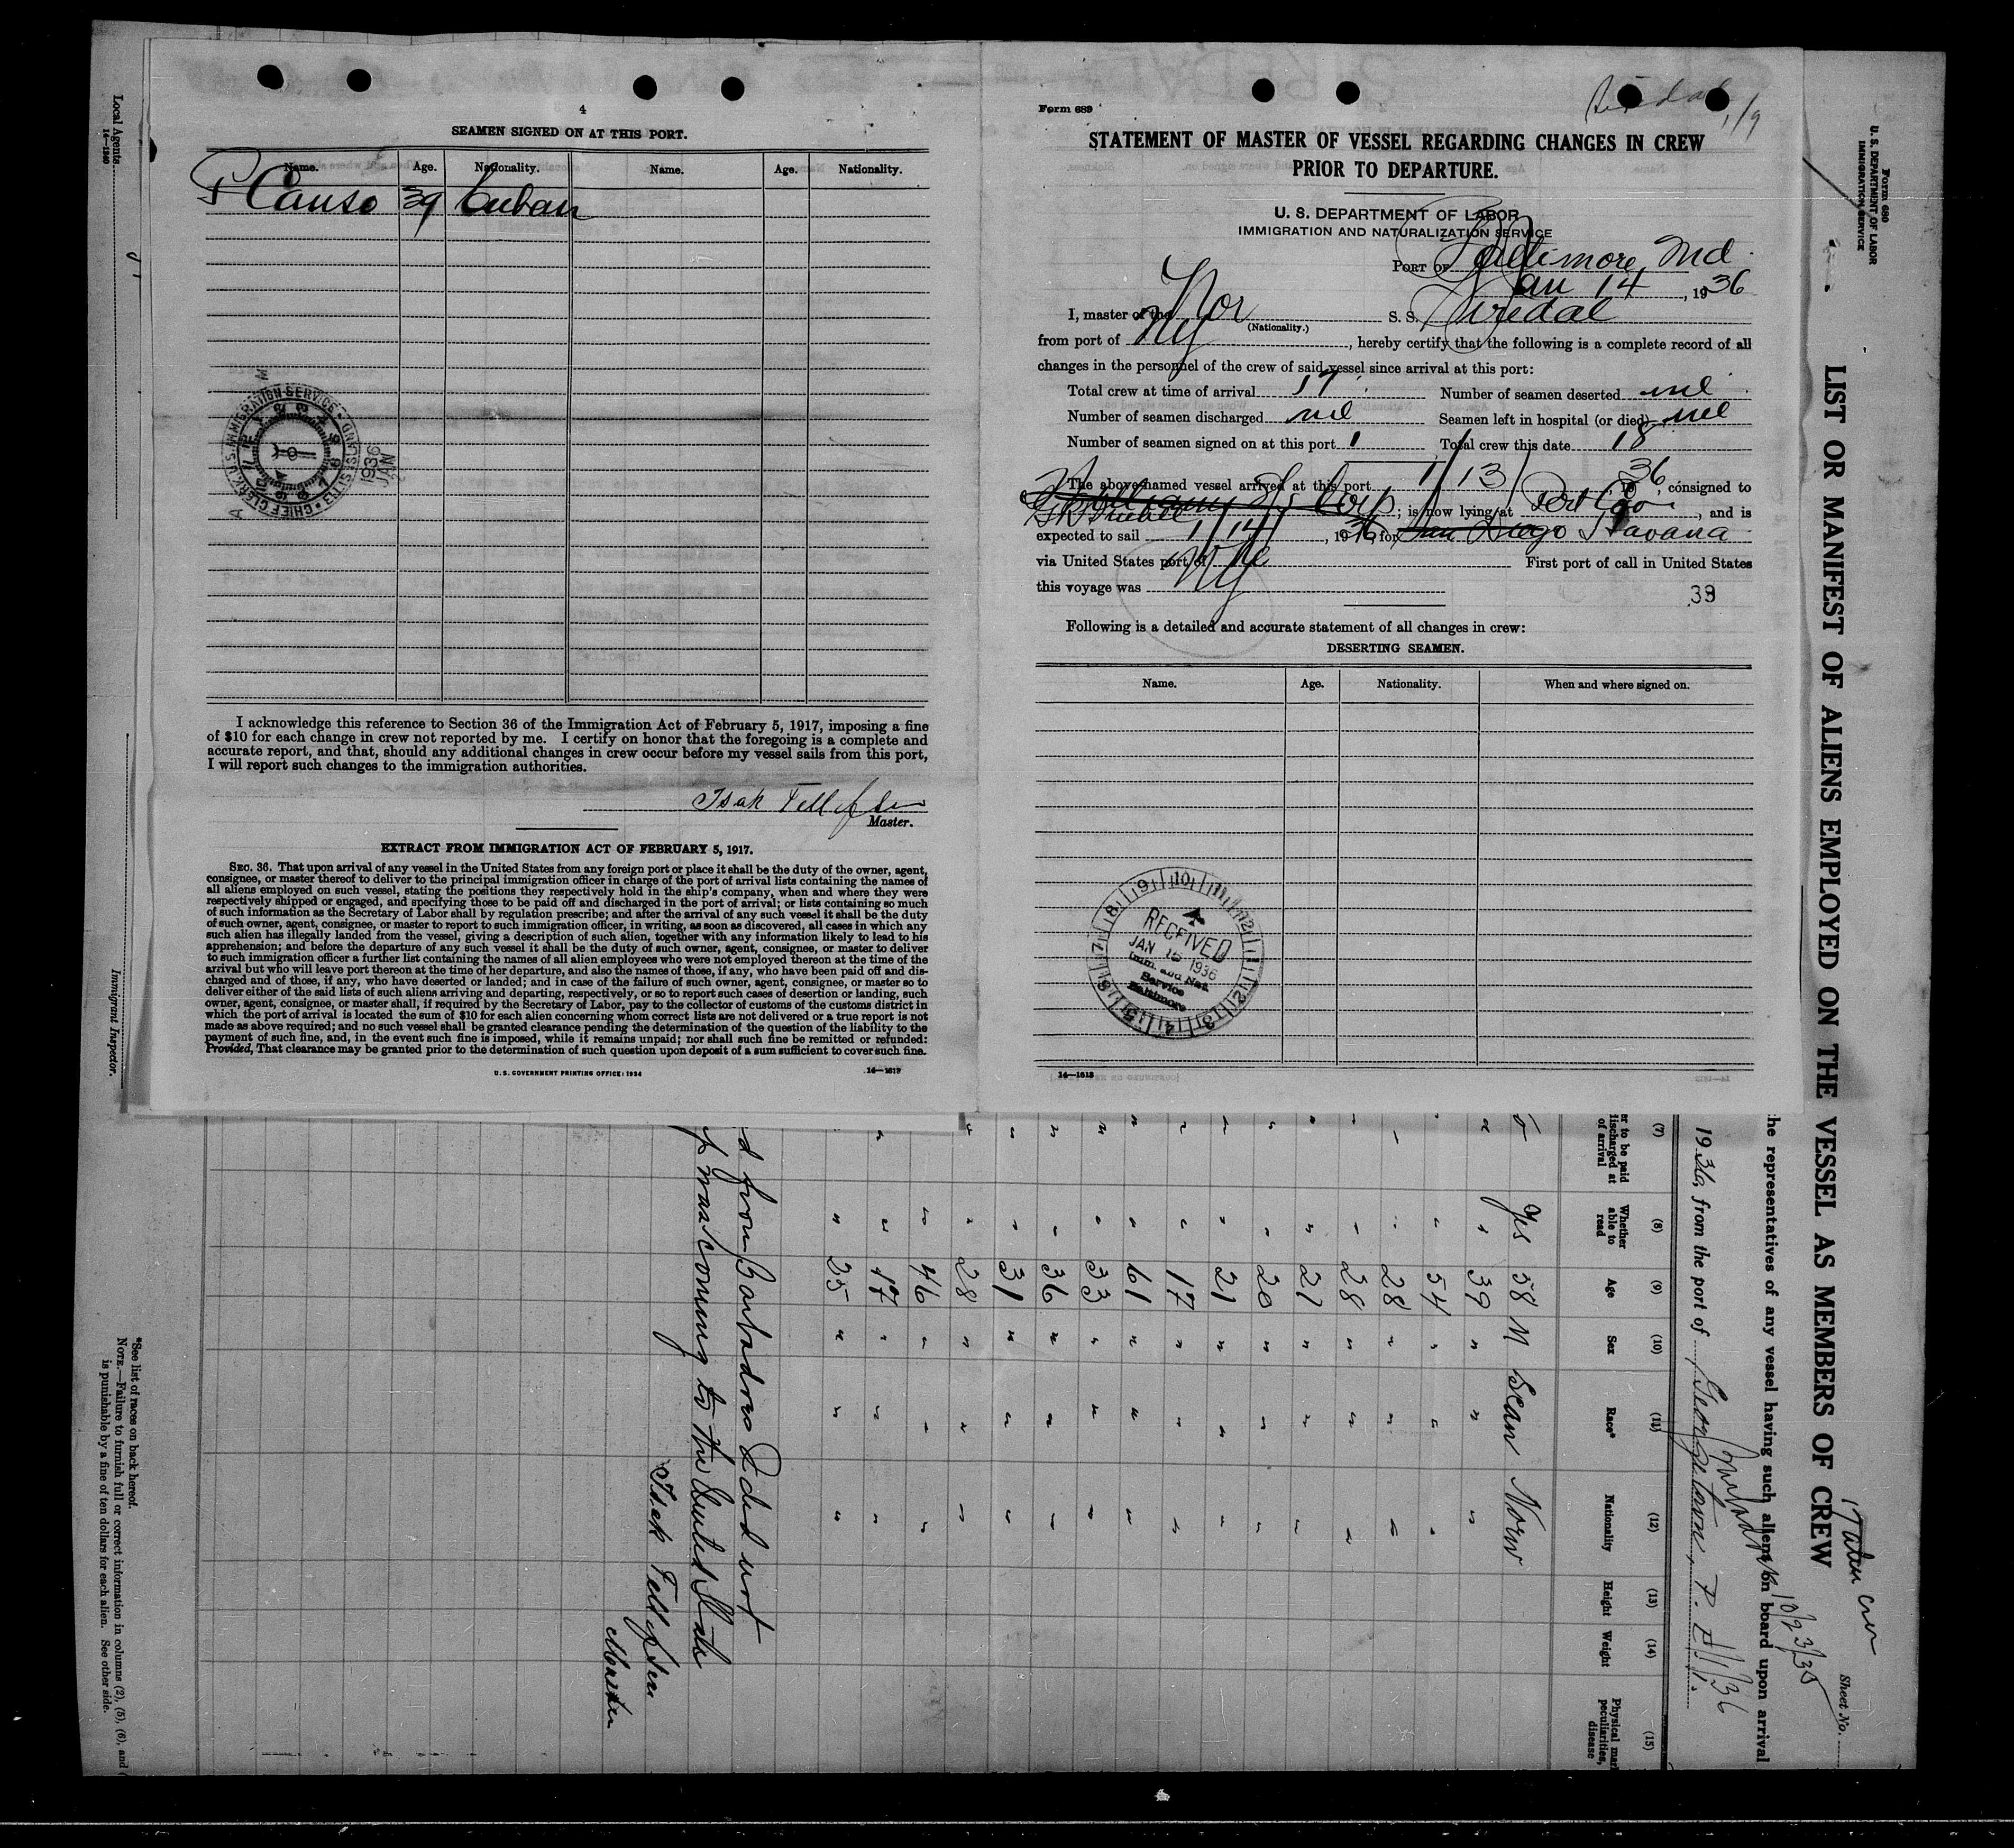 4
SEAMEN SIGNED ON AT THIS PORT.
Name. Age. Nationality. Name. Age. Nationality.
Canso 39 Cuban
CHIEF CLERK U. S. IMMIGRATION SERVICE ELLIS ISLAND
1936
JAN
I acknowledge this reference to Section 36 of the Immigration Act of February 5, 1917, imposing a fine
of $10 for each change in crew not reported by me. I certify on honor that the foregoing is a complete and
accurate report, and that, should any additional changes in crew occur before my vessel sails from this port,
I will report such changes to the immigration authorities.
Isak Tellefsen
Master.
EXTRACT FROM IMMIGRATION ACT OF FEBRUARY 5, 1917.
SEC. 36. That upon arrival of any vessel in the United States from any foreign port or place it shall be the duty of the owner, agent,
consignee, or master thereof to deliver to the principal immigration officer in charge of the port of arrival lists containing the names of
all aliens employed on such vessel, stating the positions they respectively hold in the ship's company, when and where they were
respectively shipped or engaged, and specifying those to be paid off and discharged in the port of arrival; or lists containing so much
of such information as the Secretary of Labor shall by regulation prescribe; and after the arrival of any such vessel it shall be the duty
of such owner, agent, consignee, or master to report to such immigration officer, in writing, as soon as discovered, all cases in which any
such alien has illegally landed from the vessel, giving a description of such alien, together with any information likely to lead to his
apprehension; and before the departure of any such vessel it shall be the duty of such owner, agent, consignee, or master to deliver
to such immigration officer a further list containing the names of all alien employees who were not employed thereon at the time of the
arrival but who will leave port thereon at the time of her departure, and also the names of those, if any, who have been paid off and dis-
charged and of those, if any, who have deserted or landed; and in case of the failure of such owner, agent, consignee, or master so to
deliver either of the said lists of such aliens arriving and departing, respectively, or so to report such cases of desertion or landing, such
owner, agent, consignee, or master shall, if required by the Secretary of Labor, pay to the collector of customs of the customs district in
which the port of arrival is located the sum of $10 for each alien concerning whom correct lists are not delivered or a true report is not
made as above required; and no such vessel shall be granted clearance pending the determination of the question of the liability to the
payment of such fine, and, in the event such fine is imposed, while it remains unpaid; nor shall such fine be remitted or refunded:
Provided, That clearance may be granted prior to the determination of such question upon deposit of a sum sufficient to cover such fine.
U. S. GOVERNMENT PRINTING OFFICE: 1934
14—1613
Form 689
1/9
STATEMENT OF MASTER OF VESSEL REGARDING CHANGES IN CREW
PRIOR TO DEPARTURE.
U. S. DEPARTMENT OF LABOR
IMMIGRATION AND NATURALIZATION SERVICE
PORT OF Baltimore, Md.
Jan 14, 1936
I, master of the Nor S. S.
(Nationality.)
from port of NY, hereby certify that the following is a complete record of all
changes in the personnel of the crew of said vessel since arrival at this port:
Total crew at time of arrival 17 Number of seamen deserted nil
Number of seamen discharged nil Seamen left in hospital (or died) nil
Number of seamen signed on at this port 1 Total crew this date 18
The above-named vessel arrived at this port 1/13/ 1936, consigned to
Corp; is now lying at Port Cov, and is
expected to sail 1/14/, 1936, for San Diego Havana
via United States port of First port of call in United States
this voyage was NY
33
Following is a detailed and accurate statement of all changes in crew:
DESERTING SEAMEN.
Name. Age. Nationality. When and where signed on.
RECEIVED
JAN 15 1936
Imm. and Nat.
Service
Baltimore
14—1613
Form 680
U. S. DEPARTMENT OF LABOR
IMMIGRATION SERVICE
LIST OR MANIFEST OF ALIENS EMPLOYED ON THE VESSEL AS MEMBERS OF CREW
Sheet No.
17 alien crew
10/23/35
the representatives of any vessel having such aliens on board upon arrival
1936, from the port of Georgetown, P. E. I.
1/1/36
(7) (8) (9) (10) (11) (12) (13) (14) (15)
er to be paid
discharged at
of arrival
Whether
able to
read
Age
Sex
Race*
Nationality
Height
Weight
Physical mar
peculiarities,
disease
Yes 58 M Scan Norw
" 39 " " "
" 54 " " "
" 28 " " "
" 28 " " "
" 21 " " "
" 20 " " "
" 21 " " "
" 17 " " "
" 61 " " "
" 33 " " "
" 36 " " "
" 31 " " "
" 28 " " "
" 46 " " "
" 17 " " "
" 25 " " "
d from Barbadoes I did not
if I was coming to the United State
Isak Tellefsen
Master
*See list of races on back hereof.
NOTE.—Failure to furnish full or correct information in columns (2), (5), (6), and (
is punishable by a fine of ten dollars for each alien. See other side.
Local Agents
14—1240
Immigrant Inspector.